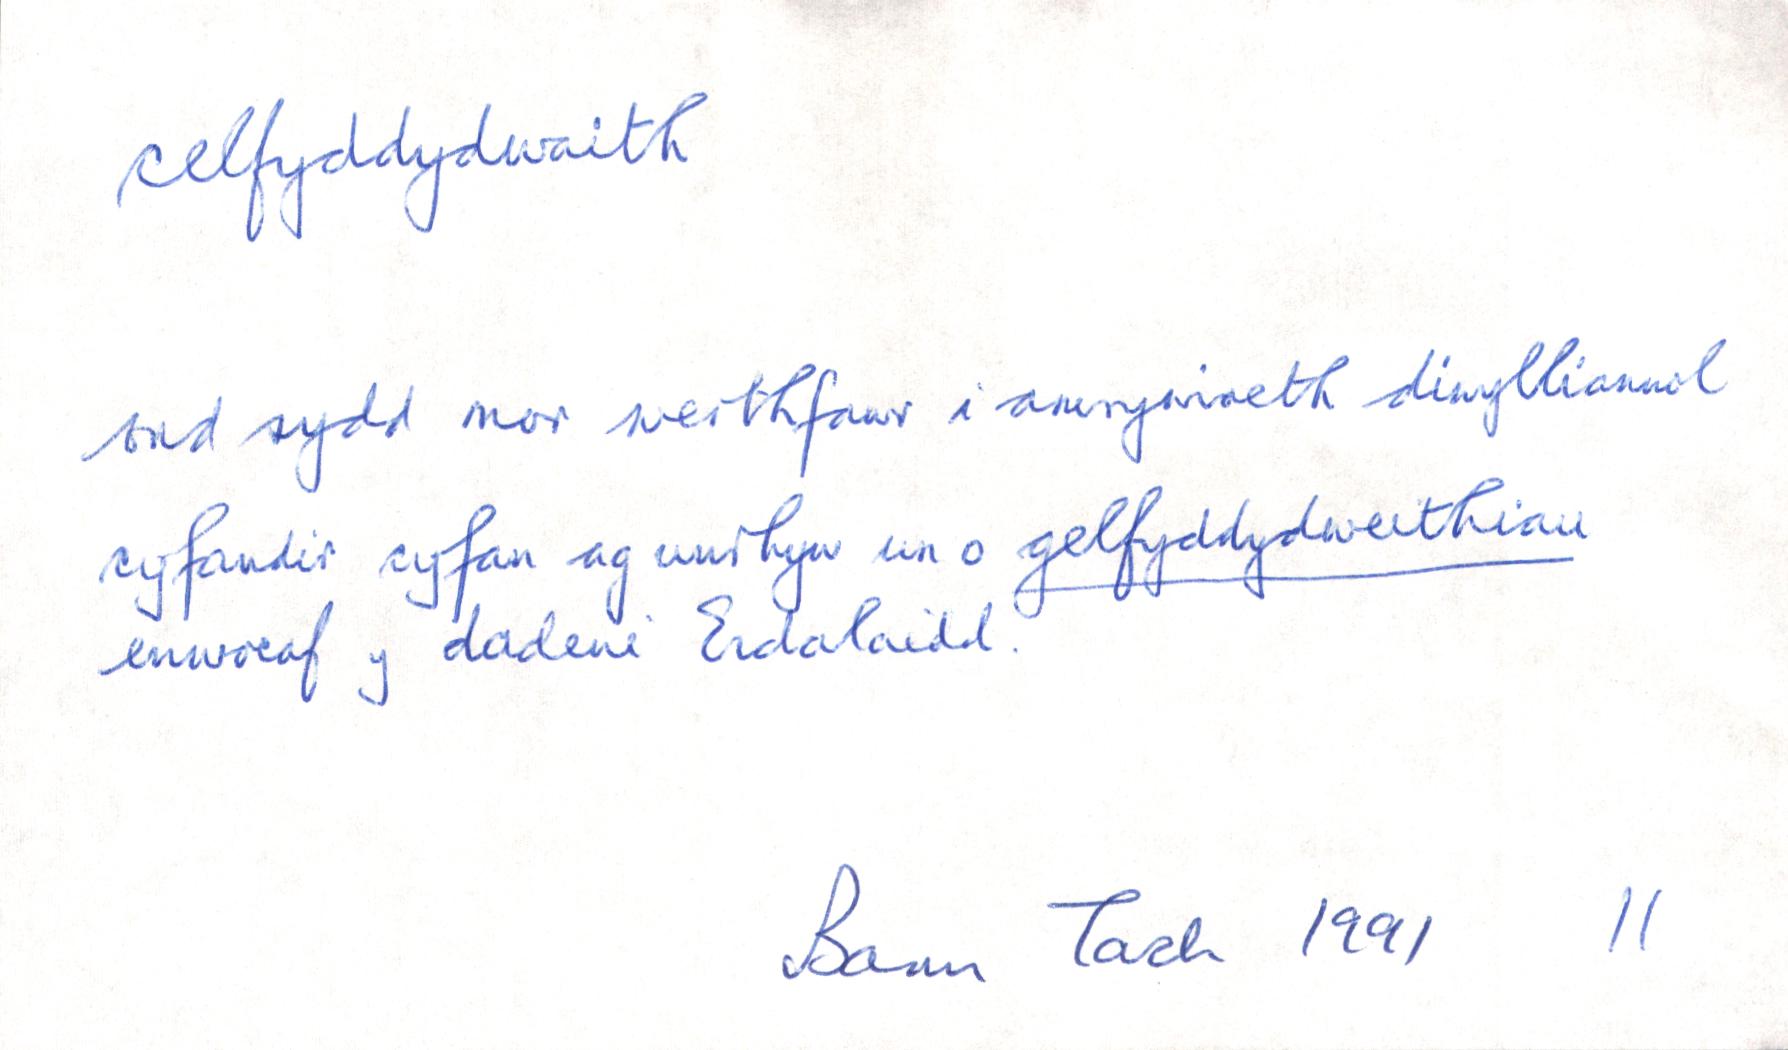 celfyddydwaith
ond sydd mor werthfawr i amrywiaeth diwylliannol
cyfandir cyfan ag unrhyw un o gelfyddydweithiau
enwocaf y dadeni Eidalaidd.
Barn Tach 1991 11